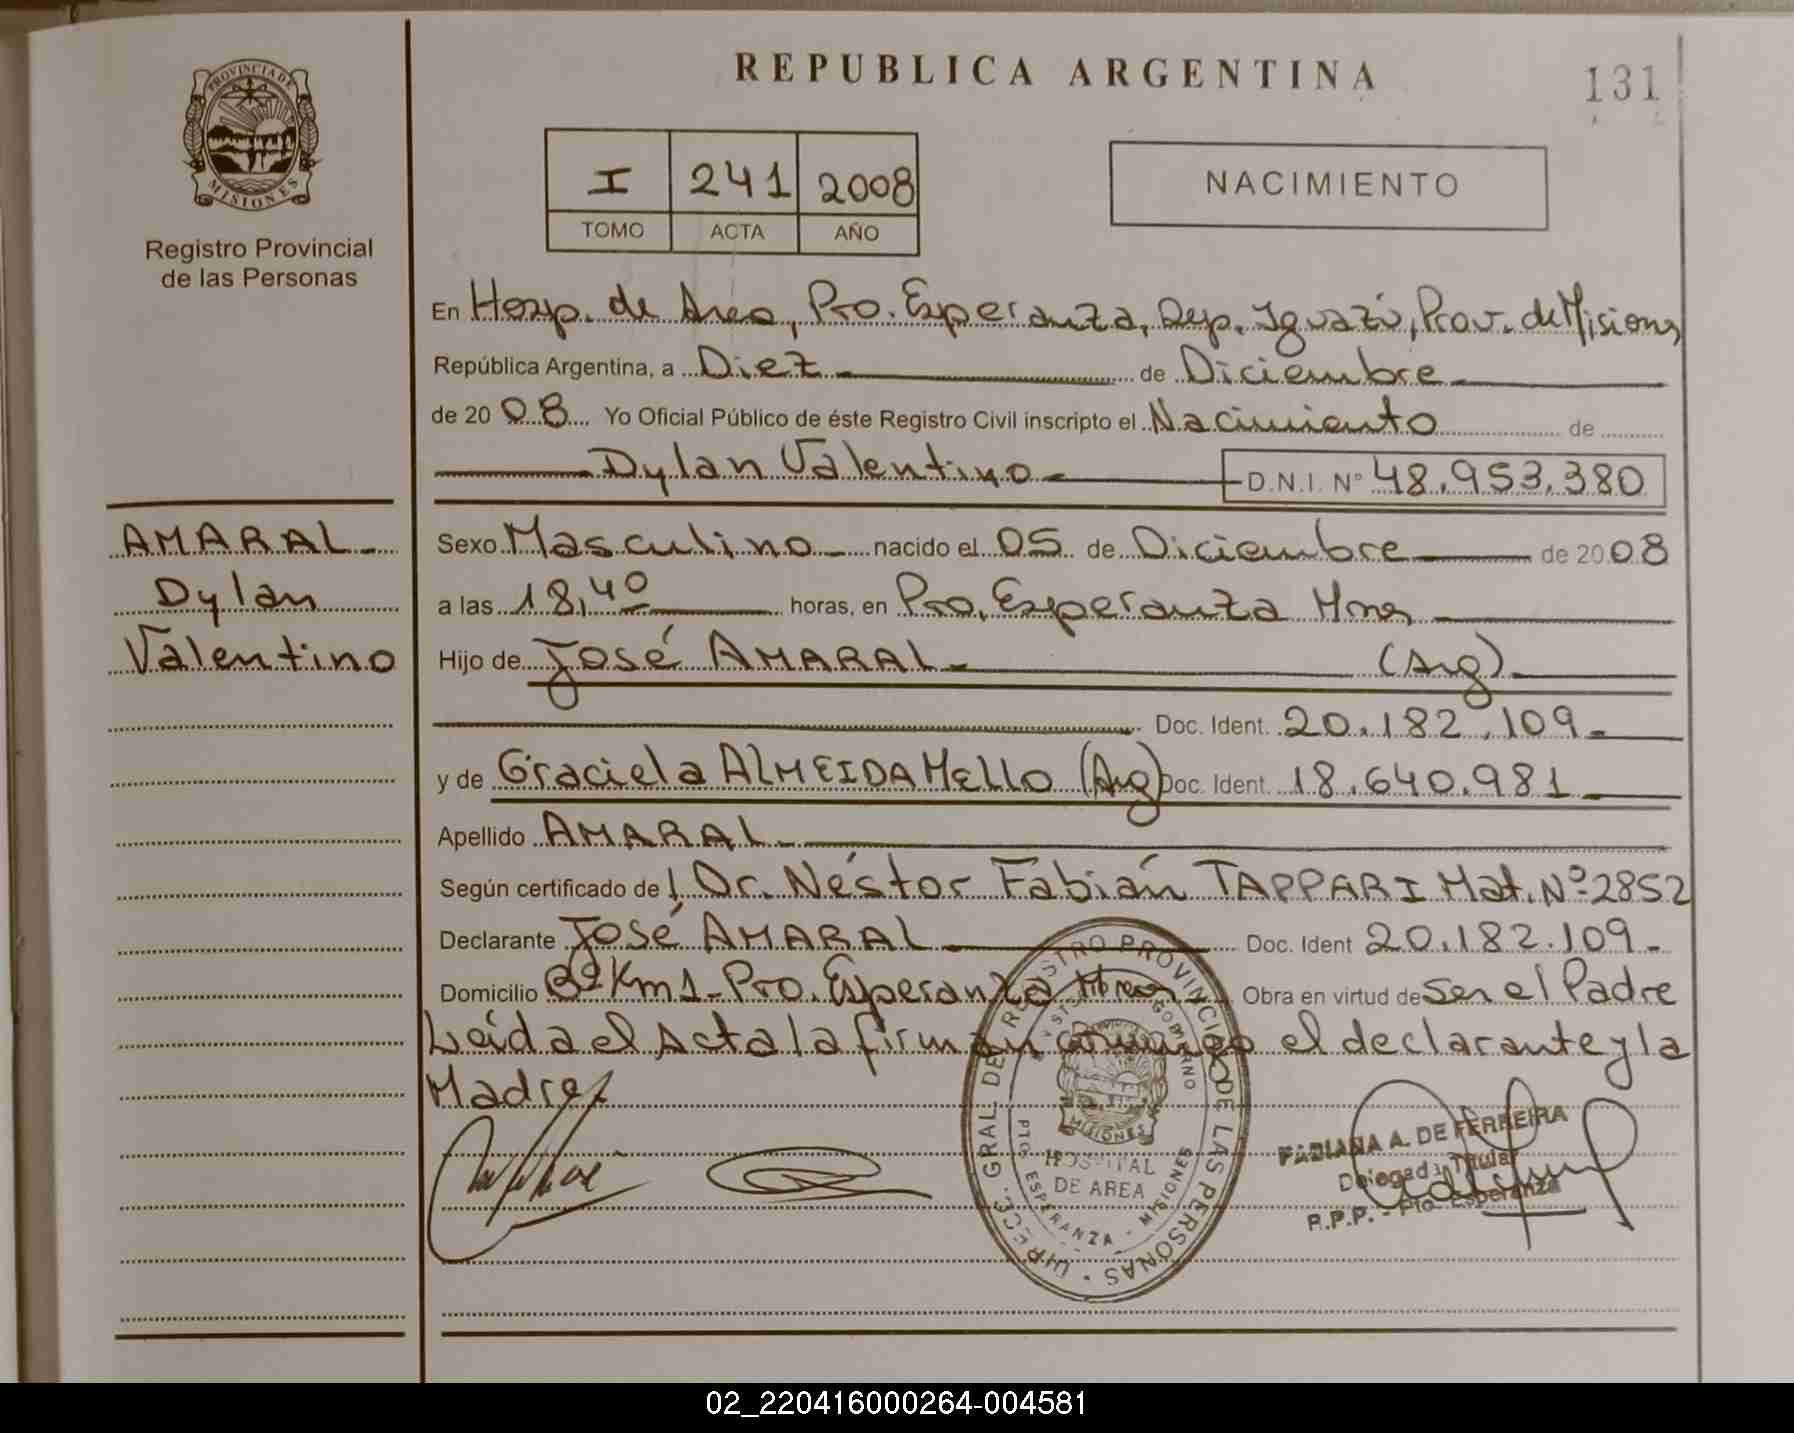 REPUBLICA ARGENTINA
131
PROVINCIA DE
MISIONES
Registro Provincial
de las Personas
I 241 2008
TOMO ACTA AÑO
NACIMIENTO
En Hosp. de Area, Pto. Esperanza, Dep. Iguazú, Prov. de Misiones
República Argentina, a Diez de Diciembre
de 20 08 Yo Oficial Público de éste Registro Civil inscripto el Nacimiento de
Dylan Valentino D.N.I. Nº 48.953.380
AMARAL
Dylan
Valentino
Sexo Masculino nacido el 05 de Diciembre de 20 08
a las 18,40 horas, en Pto. Esperanza Mnes
Hijo de José AMARAL (Arg)
Doc. Ident. 20.182.109
y de Graciela ALMEIDA MELLO (Arg) Doc. Ident. 18.640.981
Apellido AMARAL
Según certificado de Dr. Néstor Fabián TAPPARI Mat. Nº 2852
Declarante José AMARAL Doc. Ident 20.182.109
Domicilio Km 1 - Pto. Esperanza Obra en virtud de Ser el Padre
Leída el Acta la firman conmigo el declarante y la
Madre
REGISTRO PROVINCIAL DE LAS PERSONAS
MISIONES
HOSPITAL
DE AREA
PTO. ESPERANZA - MISIONES
FABIANA A. DE FERREIRA
Delegada Titular
R.P.P. - Pto. Esperanza
02_220416000264-004581